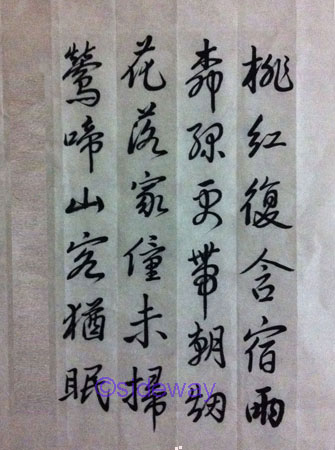 桃紅復含宿雨
柳綠更帶朝烟
花落家僮未掃
鶯啼山客猶眠
©sideway